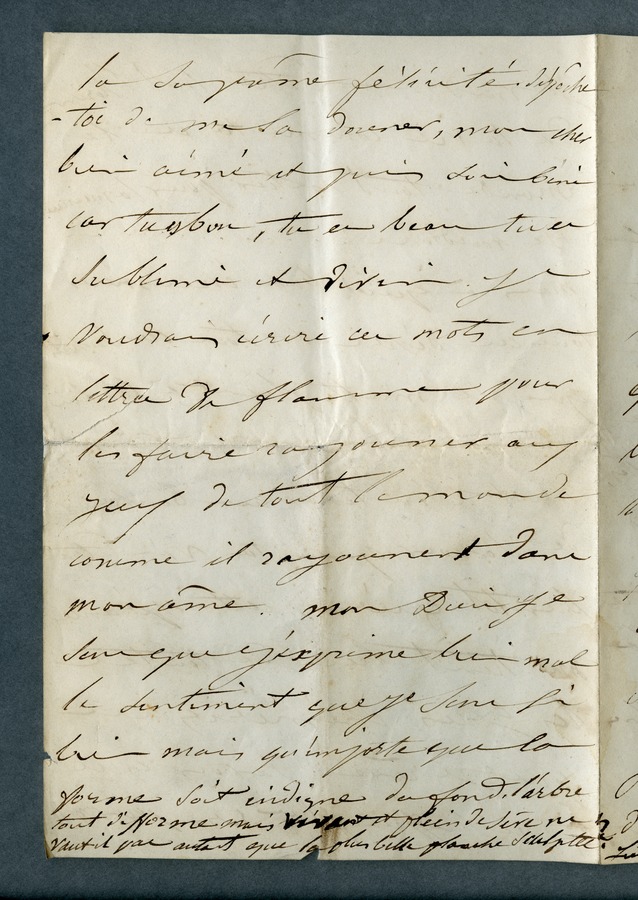 la suprême félicité. dépêche
-toi de me la donner, mon cher
bien aimé et puis sois béni
car tu es bon, tu es beau tu es
sublime et divin. je
voudrais écrire ces mots en
lettres de flamme pour
les faire rayonner aux
yeux de tout le monde
comme il rayonnent dans
mon âme. mon Dieu je
sens que j'exprime bien mal
le sentiment que je sens si
bien mais qu'importe que la
forme soit indigne du fond. l'arbre
tout difforme mais vivant et plein de sève ne
vaut il pas autant que la plus belle planche sculptée?